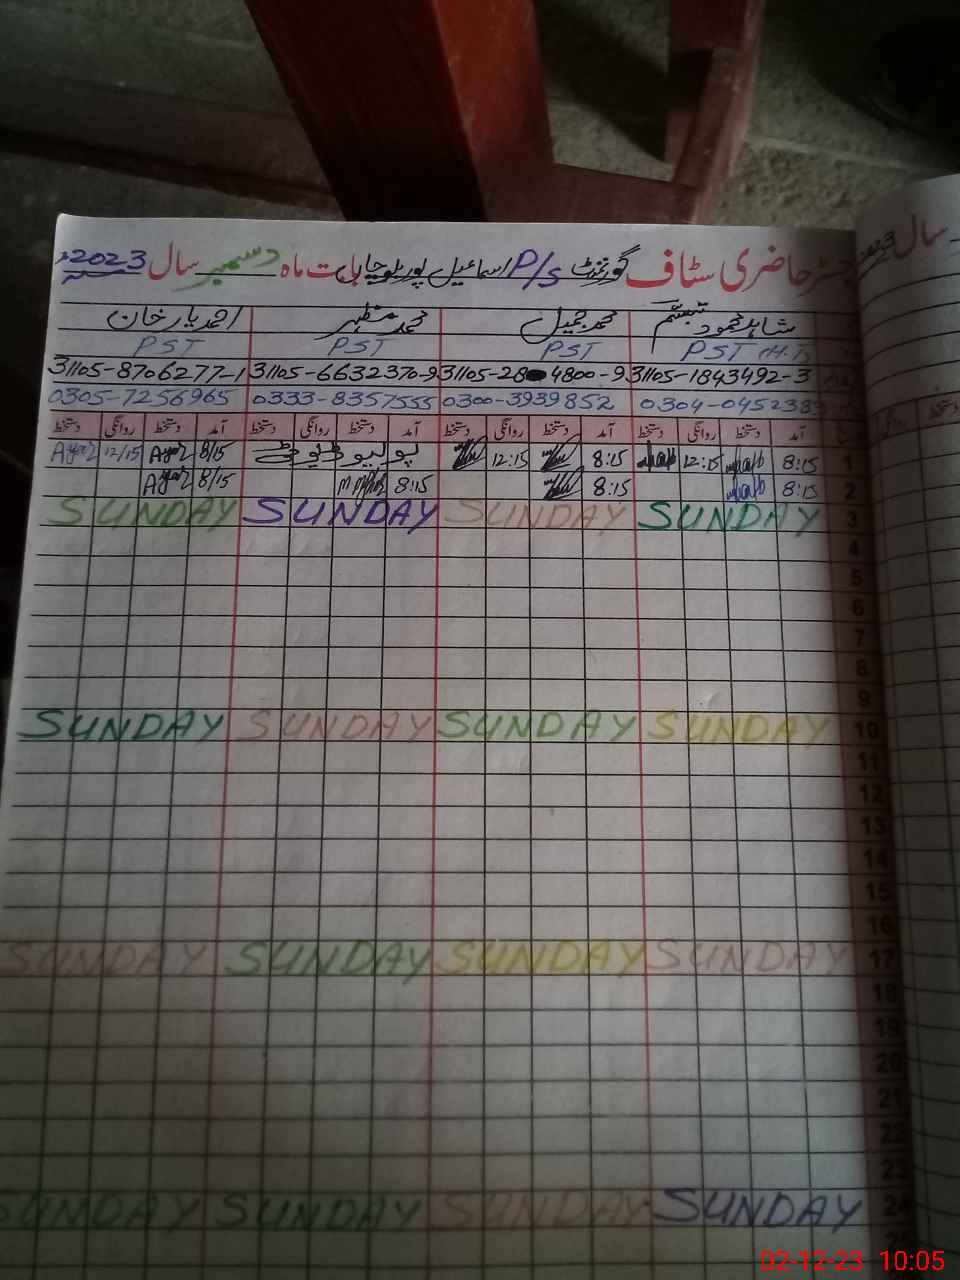 رجسٹر حاضری سٹاف گورنمنٹ P/S اسماعیل پور بلوچاں بابت ماہ دسمبر سال 2023ء
شاہد محمود تبسم محمد جمیل محمد مظہر احمد یار خان
PST H.T PST PST PST
31105-1843492-3 31105-28 4800-9 31105-6632370-9 31105-8706277-1
0304-045238 0300-3939852 0333-8357555 0305-7256965
آمد دستخط روانگی دستخط آمد دستخط روانگی دستخط آمد دستخط روانگی دستخط آمد دستخط روانگی دستخط
1 8:15 12:15 8:15 12:15 پولیو ڈیوٹی 8/15 12/15
2 8:15 8:15 8:15 8/15
3 SUNDAY SUNDAY SUNDAY SUNDAY
4
5
6
7
8
9
10 SUNDAY SUNDAY SUNDAY SUNDAY
11
12
13
14
15
16
17 SUNDAY SUNDAY SUNDAY SUNDAY
18
19
20
21
22
23
24 SUNDAY SUNDAY SUNDAY SUNDAY
25
سال 2023
دستخط روانگی
02-12-23 10:05